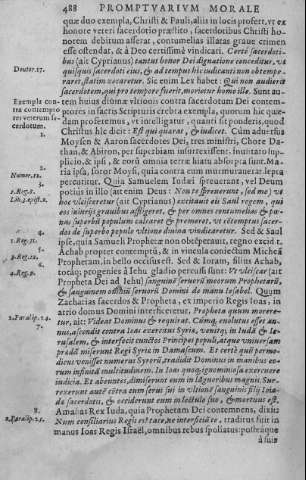 488 PROMPTVARIVM MORALE
quæ duo exempla, Christi & Pauli, aliis in locis profert, vt ex
honore veteri sacerdotio præstito, sacerdotibus Christi ho-
norem debitum asserat, contumelias illatas graue crimen
esse ostendat, & à Deo certissimè vindicari. Certè sacerdoti-
bus (ait Cyprianus) tantus honor Dei dignatione conceditur, vt
Deuter. 17.
quisquis sacerdoti eius, & ad tempus hic iudicanti non obtempe-
raret, statim necaretur. Sic enim Lex habet: Qui non audierit
sacerdotem, qui pro tempore fuerit, morietur homo ille. Sunt au-
Exempla con-
tra contemptio
nes veterum sa-
cerdotum.
tem huius diuinæ vltionis contra sacerdotum Dei contem-
ptores in sactis Scripturis crebra exempla, quorum hîc quæ-
dam proferemus, vt intelligatur, quanti sit ponderis, quod
Christus hîc dicit: Est qui quærat, & iudicet.
1.
Cùm aduersus
Moysen & Aaron sacerdotes Dei, tres ministri, Chore Da-
than, & Abiron, per superbiam insurrexissent: inusitato sup-
plicio, & ipsi, & eorum omnia terræ hiatu absorpta sunt.
2.
Numer. 12.
Maria ipsa, soror Moysi, quia contra eum murmurauerat lepra
percutitur.
3.
1. Reg. 8.
Lib. 3. epist. 9.
Quia Samuelem Iudæi spreuerant, vel Deum
potiùs in illo (ait enim Deus: Non te spreuerunt, sed me) vt
hoc vlcisceretur (ait Cyprianus) excitauit eis Saul regem, qui
eos iniuriis grauibus affligeret, & per omnes contumelias & pœ-
nas superbum populum calcaret & premeret, vt contemptus sacer-
dos de superbo populo vltione diuina vindicaretur.
4.
1. Reg. 31.
Sed & Saul
ipse, quia Samueli Prophetæ non obtemperauit, regno excidit.
5.
3. Reg. 22.
Achab propter contemptū, & in vincula coniectum Micheā
Prophetam, in bello occisus est.
6.
4. Reg. 9.
Sed & Ioram, filius Achab,
totaq; progenies à Iehu gladio percussi sunt: Vt vlciscar (ait
Propheta Dei ad Iehu) sanguinem seruorū meorum Prophetarū,
& sanguinem omniū seruorū Domini de manu Iesabel. Quòd
Zacharias sacerdos & Propheta, ex imperio Regis Ioas, in
atrio domus Domini interficeretur, Propheta quum morere-
2. Paralip. 24.
7.
tur, ait: Videat Dominus & requirat. Cúmq; euolutus esset an-
nus, ascendit contra Ioas exercitus Syriæ, venitq; in Iudā & Ie-
rusalem, & interfecit cunctos Principes populi, atque vniuersam
prædā miserunt Regi Syriæ in Damascum. Et certè quū permo-
dicus venisset numerus Syrorū, tradidit Dominus in manibus eo-
rum infinitā multitudinem. In Ioas quoq; ignominiosa exercuere
iudicia. Et abeuntes, dimiserunt eum in lāguoribus magnis. Sur-
rexerunt autē contra eum serui sui in vltionē sanguinis filij Ioia-
dæ sacerdotis, & occiderunt eum in lectulo suo, & mortuus est.
8.
2. Paralip. 25.
Amasias Rex Iuda, quia Prophetam Dei contemnens, dixit:
Num consiliarius Regis es? tace, ne interficiā te, traditus fuit in
manus Ioas Regis Israël, omnibus rebus spoliatus: postremque
à suis